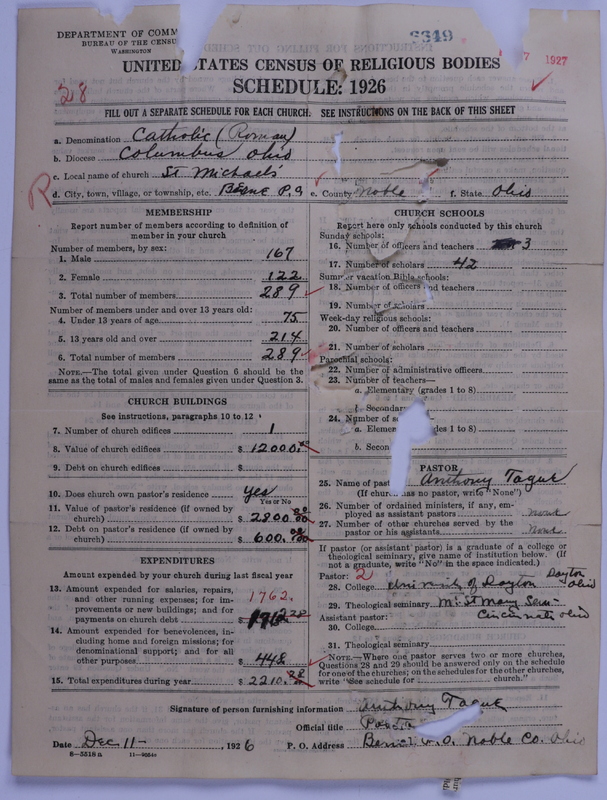 DEPARTMENT OF COMM
BUREAU OF THE CENSU
WASHINGTON
7 1927
UNITED STATES CENSUS OF RELIGIOUS BODIES
SCHEDULE: 1926
28
FILL OUT A SEPARATE SCHEDULE FOR EACH CHURCH. SEE INSTRUCTIONS ON THE BACK OF THIS SHEET
a. Denomination Catholic (Roman)
b. Diocese Columbus Ohio
c. Local name of church St Michaels
R
d. City, town, village, or township, etc. e. County Noble f. State Ohio
MEMBERSHIP
Report number of members according to definition of
member in your church
Number of members, by sex:
1. Male 167
2. Female 122
3. Total number of members 289
Number of members under and over 13 years old:
4. Under 13 years of age 75
5. 13 years old and over 214
6. Total number of members 289
NOTE.—The total given under Question 6 should be
same as the total of males and females given under Question 3.
CHURCH BUILDINGS
See instructions, paragraphs 10 to 12
7. Number of church edifices 1
8. Value of church edifices $ 12000.00
9. Debt on church edifices $
10. Does church own pastor's residence yes
Yes or No
11. Value of pastor's residence (if owned by
church) $ 2800.00
12. Debt on pastor's residence (if owned by
church) $ 600.00
EXPENDITURES
Amount expended by your church during last fiscal year
13. Amount expended for salaries, repairs,
and other running expenses; for im-
provements or new buildings; and for
payments on church debt 1762.
$ 1762.28
14. Amount expended for benevolences, in-
cluding home and foreign missions; for
denominational support; and for all
other purposes $ 448
15. Total expenditures during year $ 2210.28
CHURCH SCHOOLS
Report here only schools conducted by this church
Sunday schools:
16. Number of officers and teachers 3
17. Number of scholars 42
Summer vacation Bible schools:
18. Number of officers and teachers
19. Number of scholars
Week-day religious schools:
20. Number of officers and teachers
21. Number of scholars
Parochial schools:
22. Number of administrative officers
23. Number of teachers—
a. Elementary (grades 1 to 8)
b. Secondary
24. Number of s
a. Elemen des 1 to 8)
b. Secon
PASTOR
25. Name of past Anthony Tague
(If church has no pastor, write "None")
26. Number of ordained ministers, if any, em-
ployed as assistant pastors none
27. Number of other churches served by the
pastor or his assistants none
If pastor (or assistant pastor) is a graduate of a college or
theological seminary, give name of institution below. (If
not a graduate, write "No" in the space indicated.)
Pastor: 2
28. College University of Dayton Dayton Ohio
29. Theological seminary Mt St Mary Sem-
Assistant pastor: Cincinnati Ohio
30. College
31. Theological seminary
NOTE.—Where one pastor serves two or more churches,
Questions 28 and 29 should be answered only on the schedule
for one of the churches; on the schedules for the other churches,
write "See schedule for church."
Signature of person furnishing information Anthony Tague
Official title Pasto
Date Dec 11- , 1926 P. O. Address Noble Co. Ohio
8—5518 a